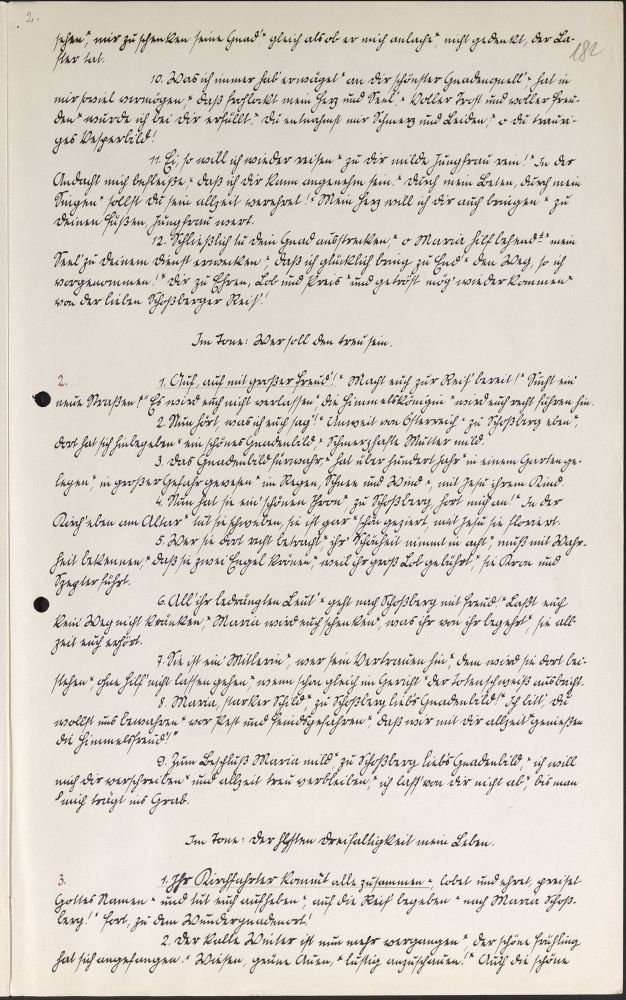 2.
182
sehen", mir zu schenken seine Gnad" gleich als ob er mich anlache", nicht gedenkt, der La-
ster tat.
10. Was ich immer hab' erwäget" an dir schönster Gnadenquell" hat in
mir soviel vermögen," daß frohlockt mein Herz und Seel'," Voller Trost und voller Freu-
den" wurde ich bei dir erfüllt," du entnahmst mir Schmerz und Leiden," o du trauri-
ges Vesperbild!
11. Ei, so will ich wieder reisen" zu dir milde Jungfrau rein!" In der
Andacht mich befleiße," daß ich dir kann angenehm sein." Durch mein Beten, durch mein
Singen" sollst du sein allzeit verehret!" Mein Herz will ich dir auch bringen" zu
deinen Füßen, Jungfrau wert.
12. Schließlich tu dein Gnad ausstrecken," o Maria hilf behend!" mein
Seel' zu deinem Dienst erwecken", daß ich glücklich bring zu End" den Weg, so ich
vorgenommen!" Dir zu Ehren, Lob und Preis" und getrost mög' wieder kommen"
von der lieben Schoßberger Reis'!
Im Tone: Wer soll den treu sein.
2. 1. Auf, auf mit großer Freud'!" Macht euch zur Reis' bereit!" Sucht ein'
neue Straßen!" Es wird euch nicht verlassen", die Himmelskönigin" wird euch recht führen hin.
2. Nun hört, was ich euch sag'!" Unweit von Österreich" zu Schoßberg eben",
dort hat sich hinbegeben" ein schönes Gnadenbild" Schmerzhafte Mutter mild.
3. Das Gnadenbild fürwahr," hat über hundert Jahr" in einem Garten ge-
legen", in großer Gefahr gewesen" in Regen, Schnee und Wind", mit Jesu ihrem Kind.
4. Nun hat sie ein' schönen Thron", zu Schoßberg, hört mich an!" In der
Kirch' eben am Altar" tut sie schweben, sie ist gar" schön geziert, mit Jesu sie floriert.
5. Wer sie dort recht betracht" ihr' Schönheit nimmt in acht", muß mit Wahr-
heit bekennen," daß sie zwei Engel krönen", weil ihr groß Lob gebührt", sie Kron und
Szepter führt.
6. All' ihr bedrängten Leut'" geht nach Schoßberg mit Freud!" Laßt euch
kein' Weg nicht kränken," Maria wird euch schenken", was ihr von ihr begehrt", sie all-
zeit euch erhört.
7. Sie ist ein' Mittlerin", wer sein Vertrauen hin", dem wird sie dort bei-
stehen", ohne Hilf' nicht lassen gehen", wenn schon gleich im Gericht" der Totenschweiß ausbricht.
8. Maria, starker Schild", zu Schoßberg liebs Gnadenbild!" Ich bitt', du
wollst uns bewahren" vor Pest und Feindsgefahren", daß wir mit dir allzeit" genießen
die Himmelsfreud!"
9. Zum Beschluß Maria mild", zu Schoßberg liebs Gnadenbild", ich will
mich dir verschreiben" und allzeit treu verbleiben," ich laß' von dir nicht ab", bis man
mich trägt ins Grab.
Im Tone: Der Hlgsten Dreifaltigkeit mein Leben.
3. 1. Ihr Kirchfahrter kommt alle zusammen", lobet und ehret, preiset
Gottes Namen" und tut euch aufheben", auf die Reis' begeben" nach Maria Schoß-
berg!" fort, zu dem Wundergnadenort!
2. Der kalte Winter ist nun mehr vergangen", der schöne Frühling
hat sich angefangen." Wiesen, grüne Auen," lustig anzuschauen!" Auch die schöne